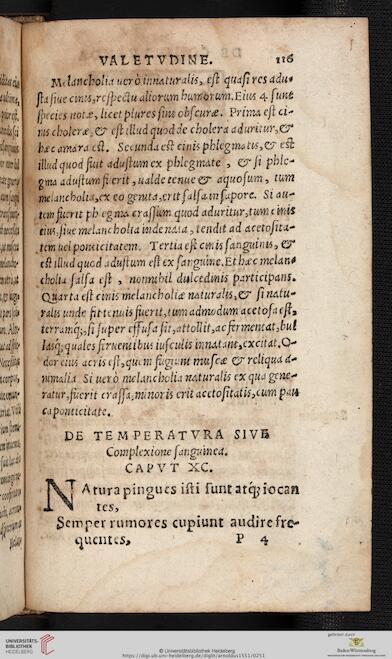 VALETVDINE. 116
Melancholia verò innaturalis, est quasi res adu-
sta siue cinis, respectu aliorum humorum. Eius 4 sunt
species notæ, licet plures sint obscuræ. Prima est ci-
nis choleræ, & est illud quod de cholera aduritur, &
hæc amara est. Secunda est cinis phlegmatis, & est
illud quod fuit adustum ex phlegmate, & si phle-
gma adustum fuerit, valde tenue & aquosum, tum
melancholia, ex eo genita, erit salsa in sapore. Si au-
tem fuerit phlegma crassum quod aduritur, tum cinis
eius, siue melancholia inde nata, tendit ad acetosita-
tem vel ponticitatem. Tertia est cinis sanguinis, &
est illud quod adustum est ex sanguine. Et hæc melan-
cholia salsa est, nonnihil dulcedinis participans.
Quarta est cinis melancholiæ naturalis, & si natu-
ralis unde fit tenuis fuerit, tum admodum acetosa est,
terramq; si super effusa sit, attollit, ac fermentat, bul
lasq; quales feruentibus iusculis innatant, excitat. O-
dor eius acris est, quem fugiunt muscæ & reliqua a-
nimalia. Si verò melancholia naturalis ex qua gene-
ratur, fuerit crassa, minoris erit acetositatis, cum pau
ca ponticitate.
DE TEMPERATVRA SIVE
Complexione sanguinea.
CAPVT XC.
NAtura pingues isti sunt atq; iocan
tes,
Semper rumores cupiunt audire fre-
quentes,
P 4
UNIVERSITÄTS-
BIBLIOTHEK
HEIDELBERG
© Universitätsbibliothek Heidelberg
https://digi.ub.uni-heidelberg.de/diglit/arnoldus1551/0251
gefördert durch
Baden-Württemberg